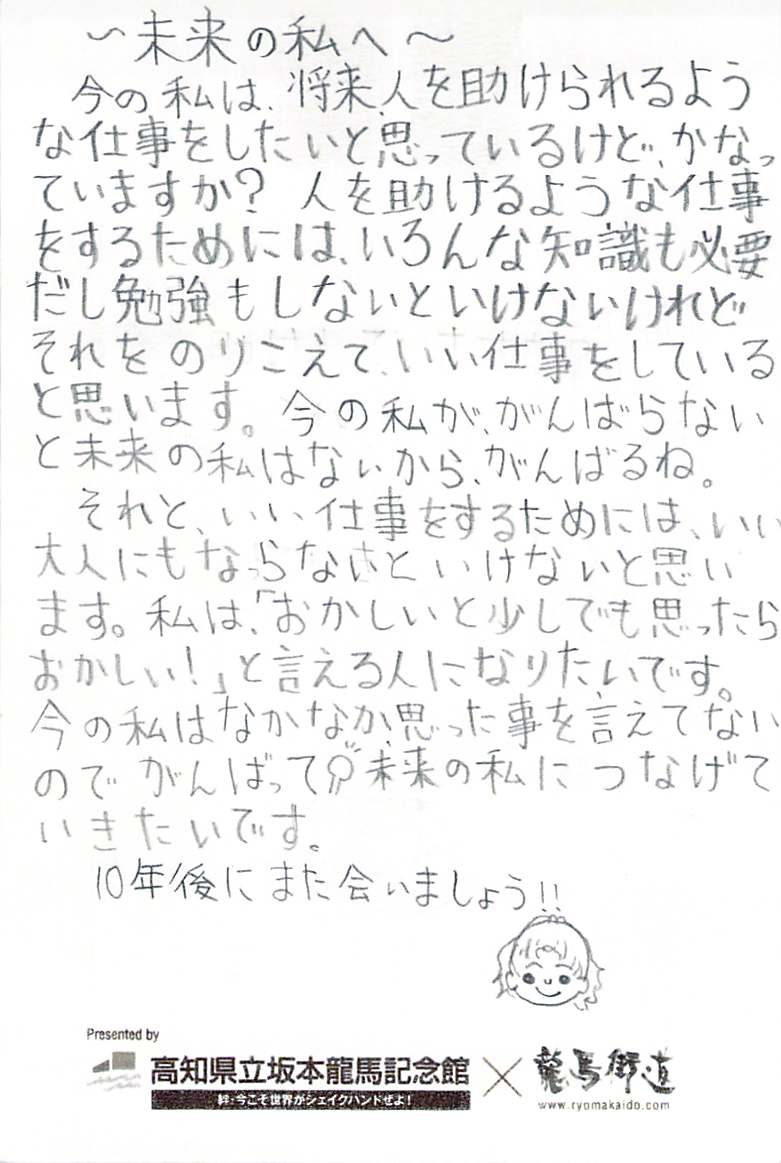 ～未来の私へ～
今の私は、将来、人を助けられるよう
な仕事をしたいと思っているけど、かなっ
ていますか？ 人を助けるような仕事
をするためには、いろんな知識も必要
だし勉強もしないといけないけれど
それをのりこえて、いい仕事をしている
と思います。今の私が、がんばらない
と未来の私はないから、がんばるね。
それと、いい仕事をするためには、いい
大人にもならないといけないと思い
ます。私は、「おかしいと少しでも思ったら
おかしい！」と言える人になりたいです。
今の私はなかなか、思った事を言えてない
のでがんばって未来の私につなげて
いきたいです。
10年後にまた会いましょう!!
Presented by
高知県立坂本龍馬記念館
絆・今こそ世界がシェイクハンドぜよ！
×
龍馬街道
www.ryomakaido.com